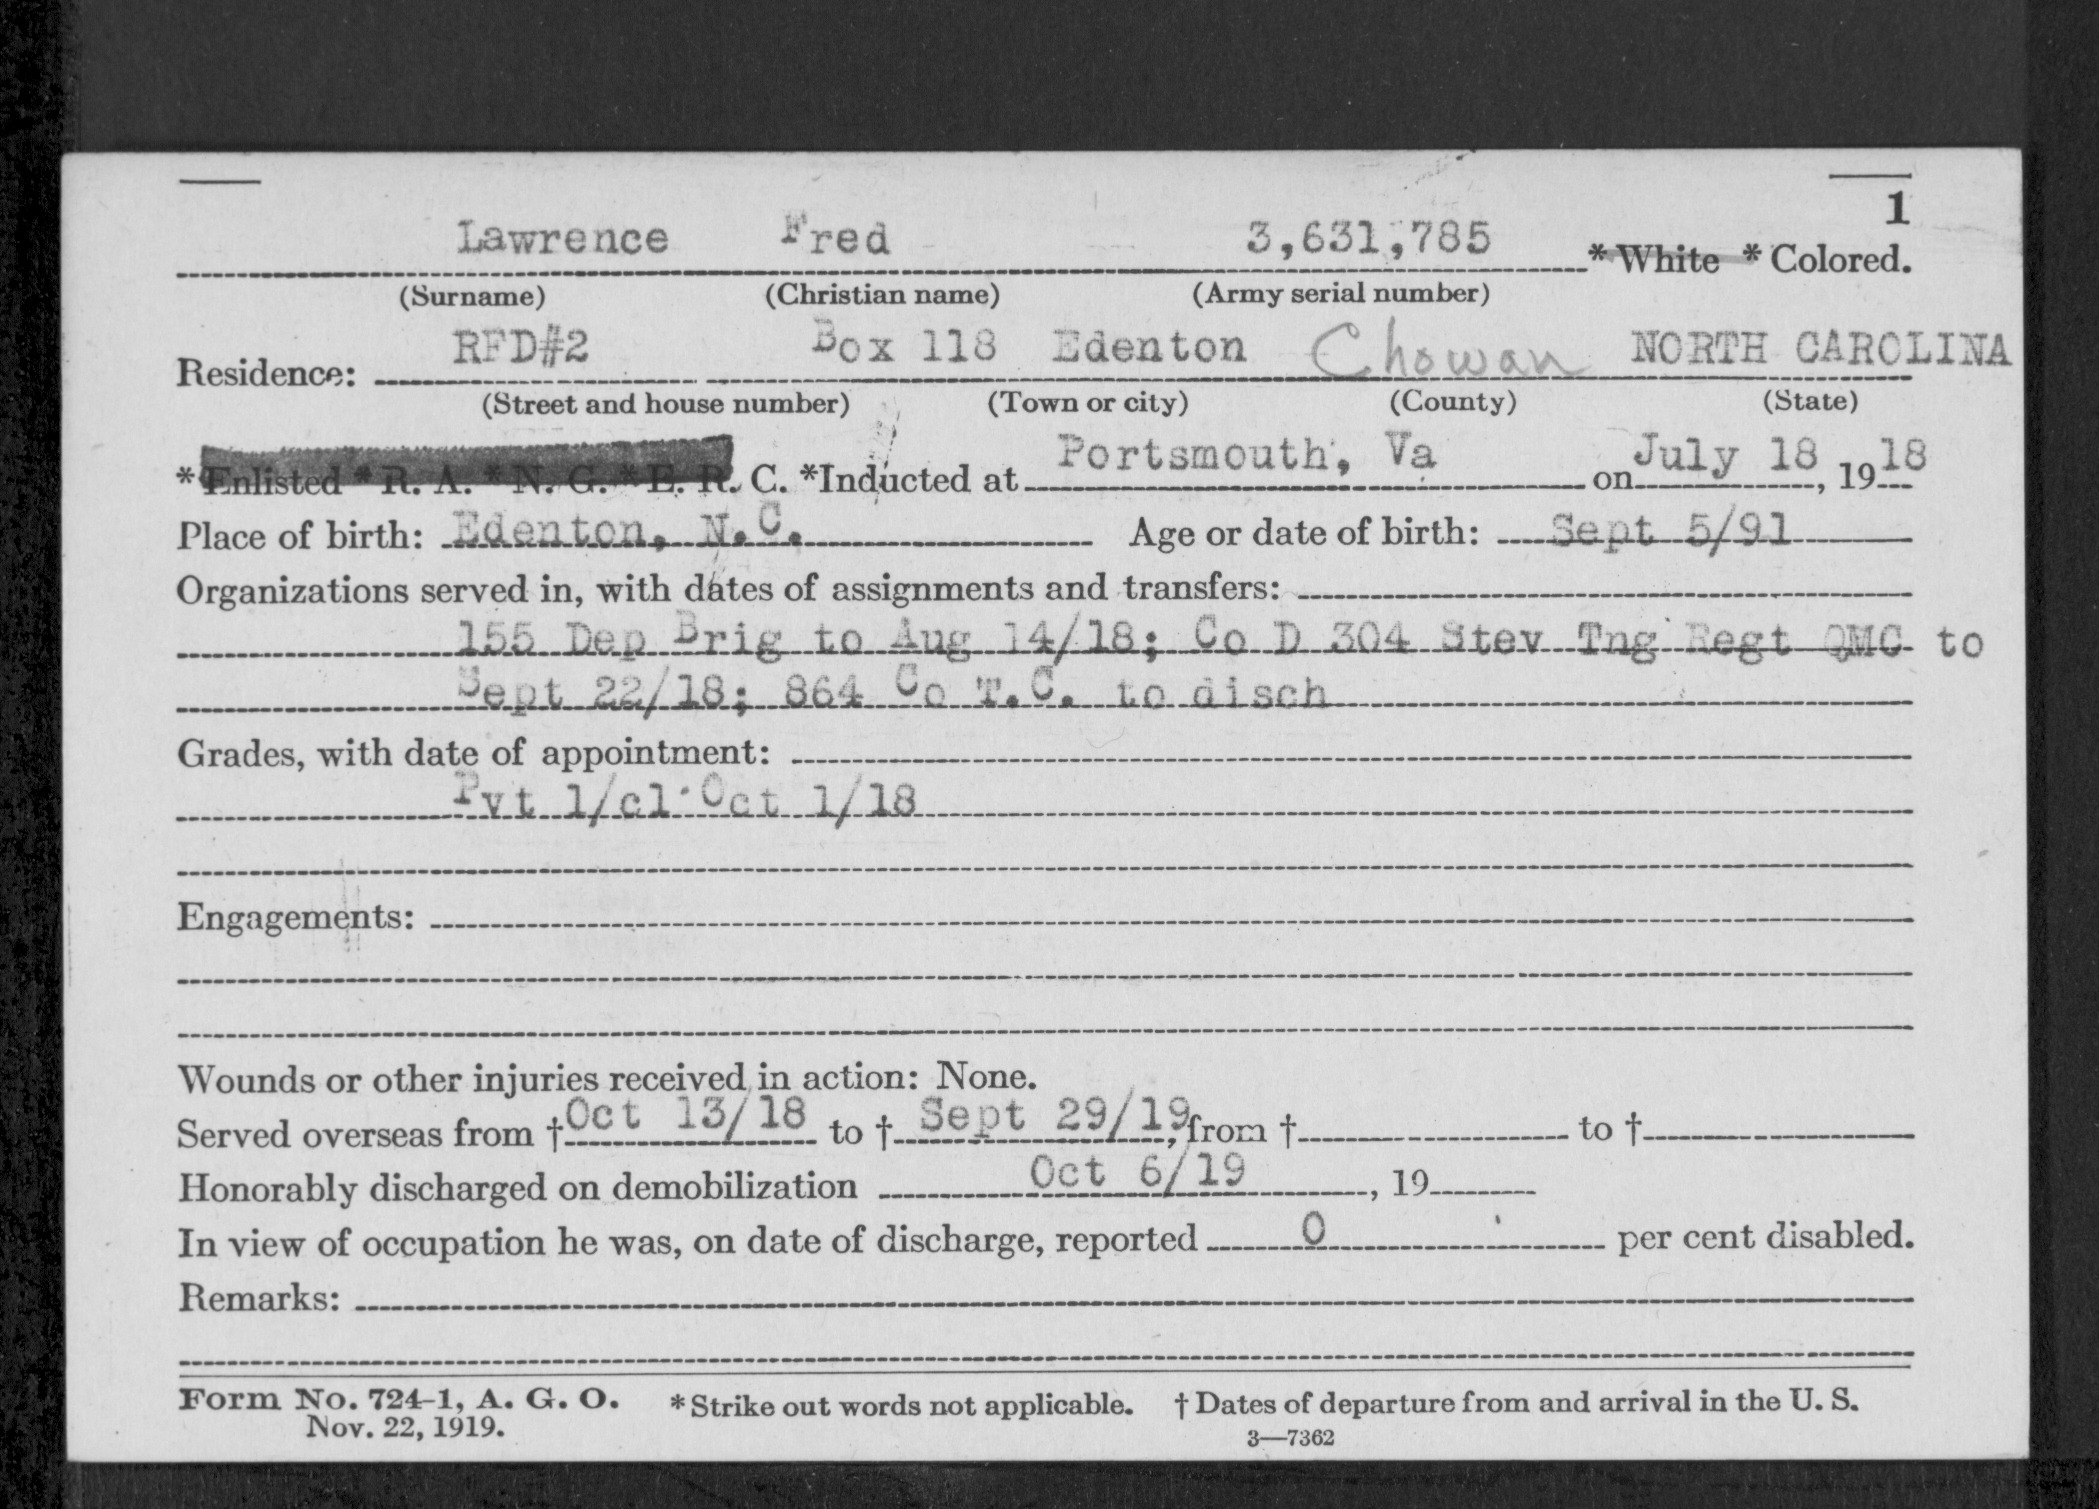 1
Lawrence Fred 3,631,785 * White * Colored.
(Surname) (Christian name) (Army serial number)
Residence: RFD#2 Box 118 Edenton Chowan NORTH CAROLINA
(Street and house number) (Town or city) (County) (State)
* Enlisted * R. A. * N. G. * E. R. C. *Inducted at Portsmouth, Va on July 18, 1918
Place of birth: Edenton, N.C. Age or date of birth: Sept 5/91
Organizations served in, with dates of assignments and transfers:
155 Dep Brig to Aug 14/18; Co D 304 Stev Tng Regt QMC to
Sept 22/18; 864 Co T.C. to disch
Grades, with date of appointment:
Pvt 1/cl Oct 1/18
Engagements:
Wounds or other injuries received in action: None.
Served overseas from † Oct 13/18 to † Sept 29/19, from † to †
Honorably discharged on demobilization Oct 6/19, 19
In view of occupation he was, on date of discharge, reported 0 per cent disabled.
Remarks:
Form No. 724-1, A. G. O. * Strike out words not applicable. † Dates of departure from and arrival in the U. S.
Nov. 22, 1919.
3—7362